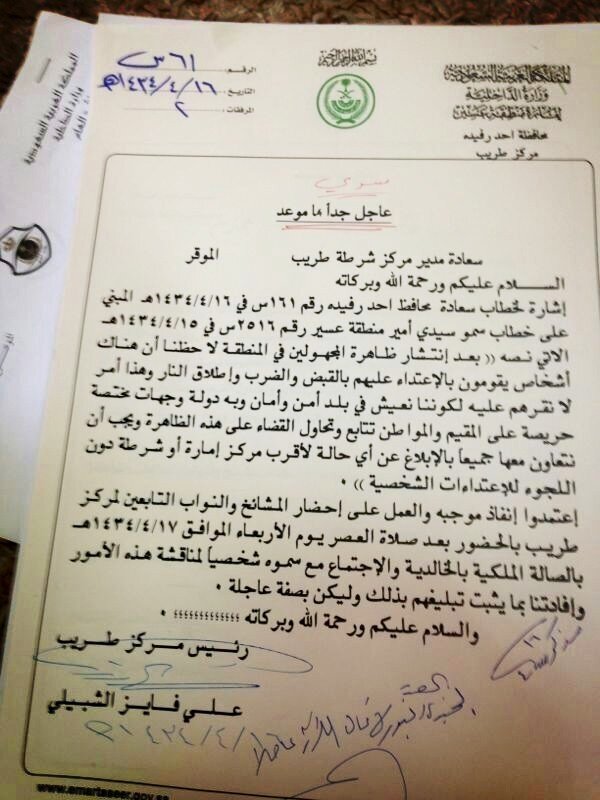 المملكة العربية السعودية
وزارة الداخلية
إمارة منطقة عسير
محافظة احد رفيده
مركز طريب
بسم الله الرحمن الرحيم
الرقم: ٦١س
التاريخ: ١٤٣٤/٤/١٦هـ
المرفقات: ٢
المملكة العربية السعودية
وزارة الداخلية
سري
عاجل جداً هاموعد
سعادة مدير مركز شرطة طريب الموقر
السلام عليكم ورحمة الله وبركاته
إشارة لخطاب سعادة محافظ احد رفيده رقم ١٦١س في ١٤٣٤/٤/١٦هـ المبني
على خطاب سمو سيدي أمير منطقة عسير رقم ٢٥١٦س في ١٤٣٤/٤/١٥هـ
الاتي نصه (( بعد إنتشار ظاهرة المجهولين في المنطقة لاحظنا أن هناك
أشخاص يقومون بالإعتداء عليهم بالقبض والضرب وإطلاق النار وهذا أمر
لا نقرهم عليه لكوننا نعيش في بلد أمن وأمان وبه دولة وجهات مختصة
حريصة على المقيم والمواطن تتابع وتحاول القضاء على هذه الظاهرة ويجب أن
نتعاون معها جميعاً بالإبلاغ عن أي حالة لأقرب مركز إمارة أو شرطة دون
اللجوء للإعتداءات الشخصية )) ٠
إعتمدوا إنفاذ موجبه والعمل على إحضار المشائخ والنواب التابعين لمركز
طريب بالحضور بعد صلاة العصر يوم الأربعاء الموافق ١٤٣٤/٤/١٧هـ
بالصالة الملكية بالخالدية والإجتماع مع سموه شخصياً لمناقشة هذه الأمور
وإفادتنا بما يثبت تبليغهم بذلك وليكن بصفة عاجلة ٠
والسلام عليكم ورحمة الله وبركاته ؛؛؛؛؛؛؛؛؛؛؛؛ ٠
رئيس مركز طريب
علي فايز الشبيلي
www.emartaseer.gov.sa